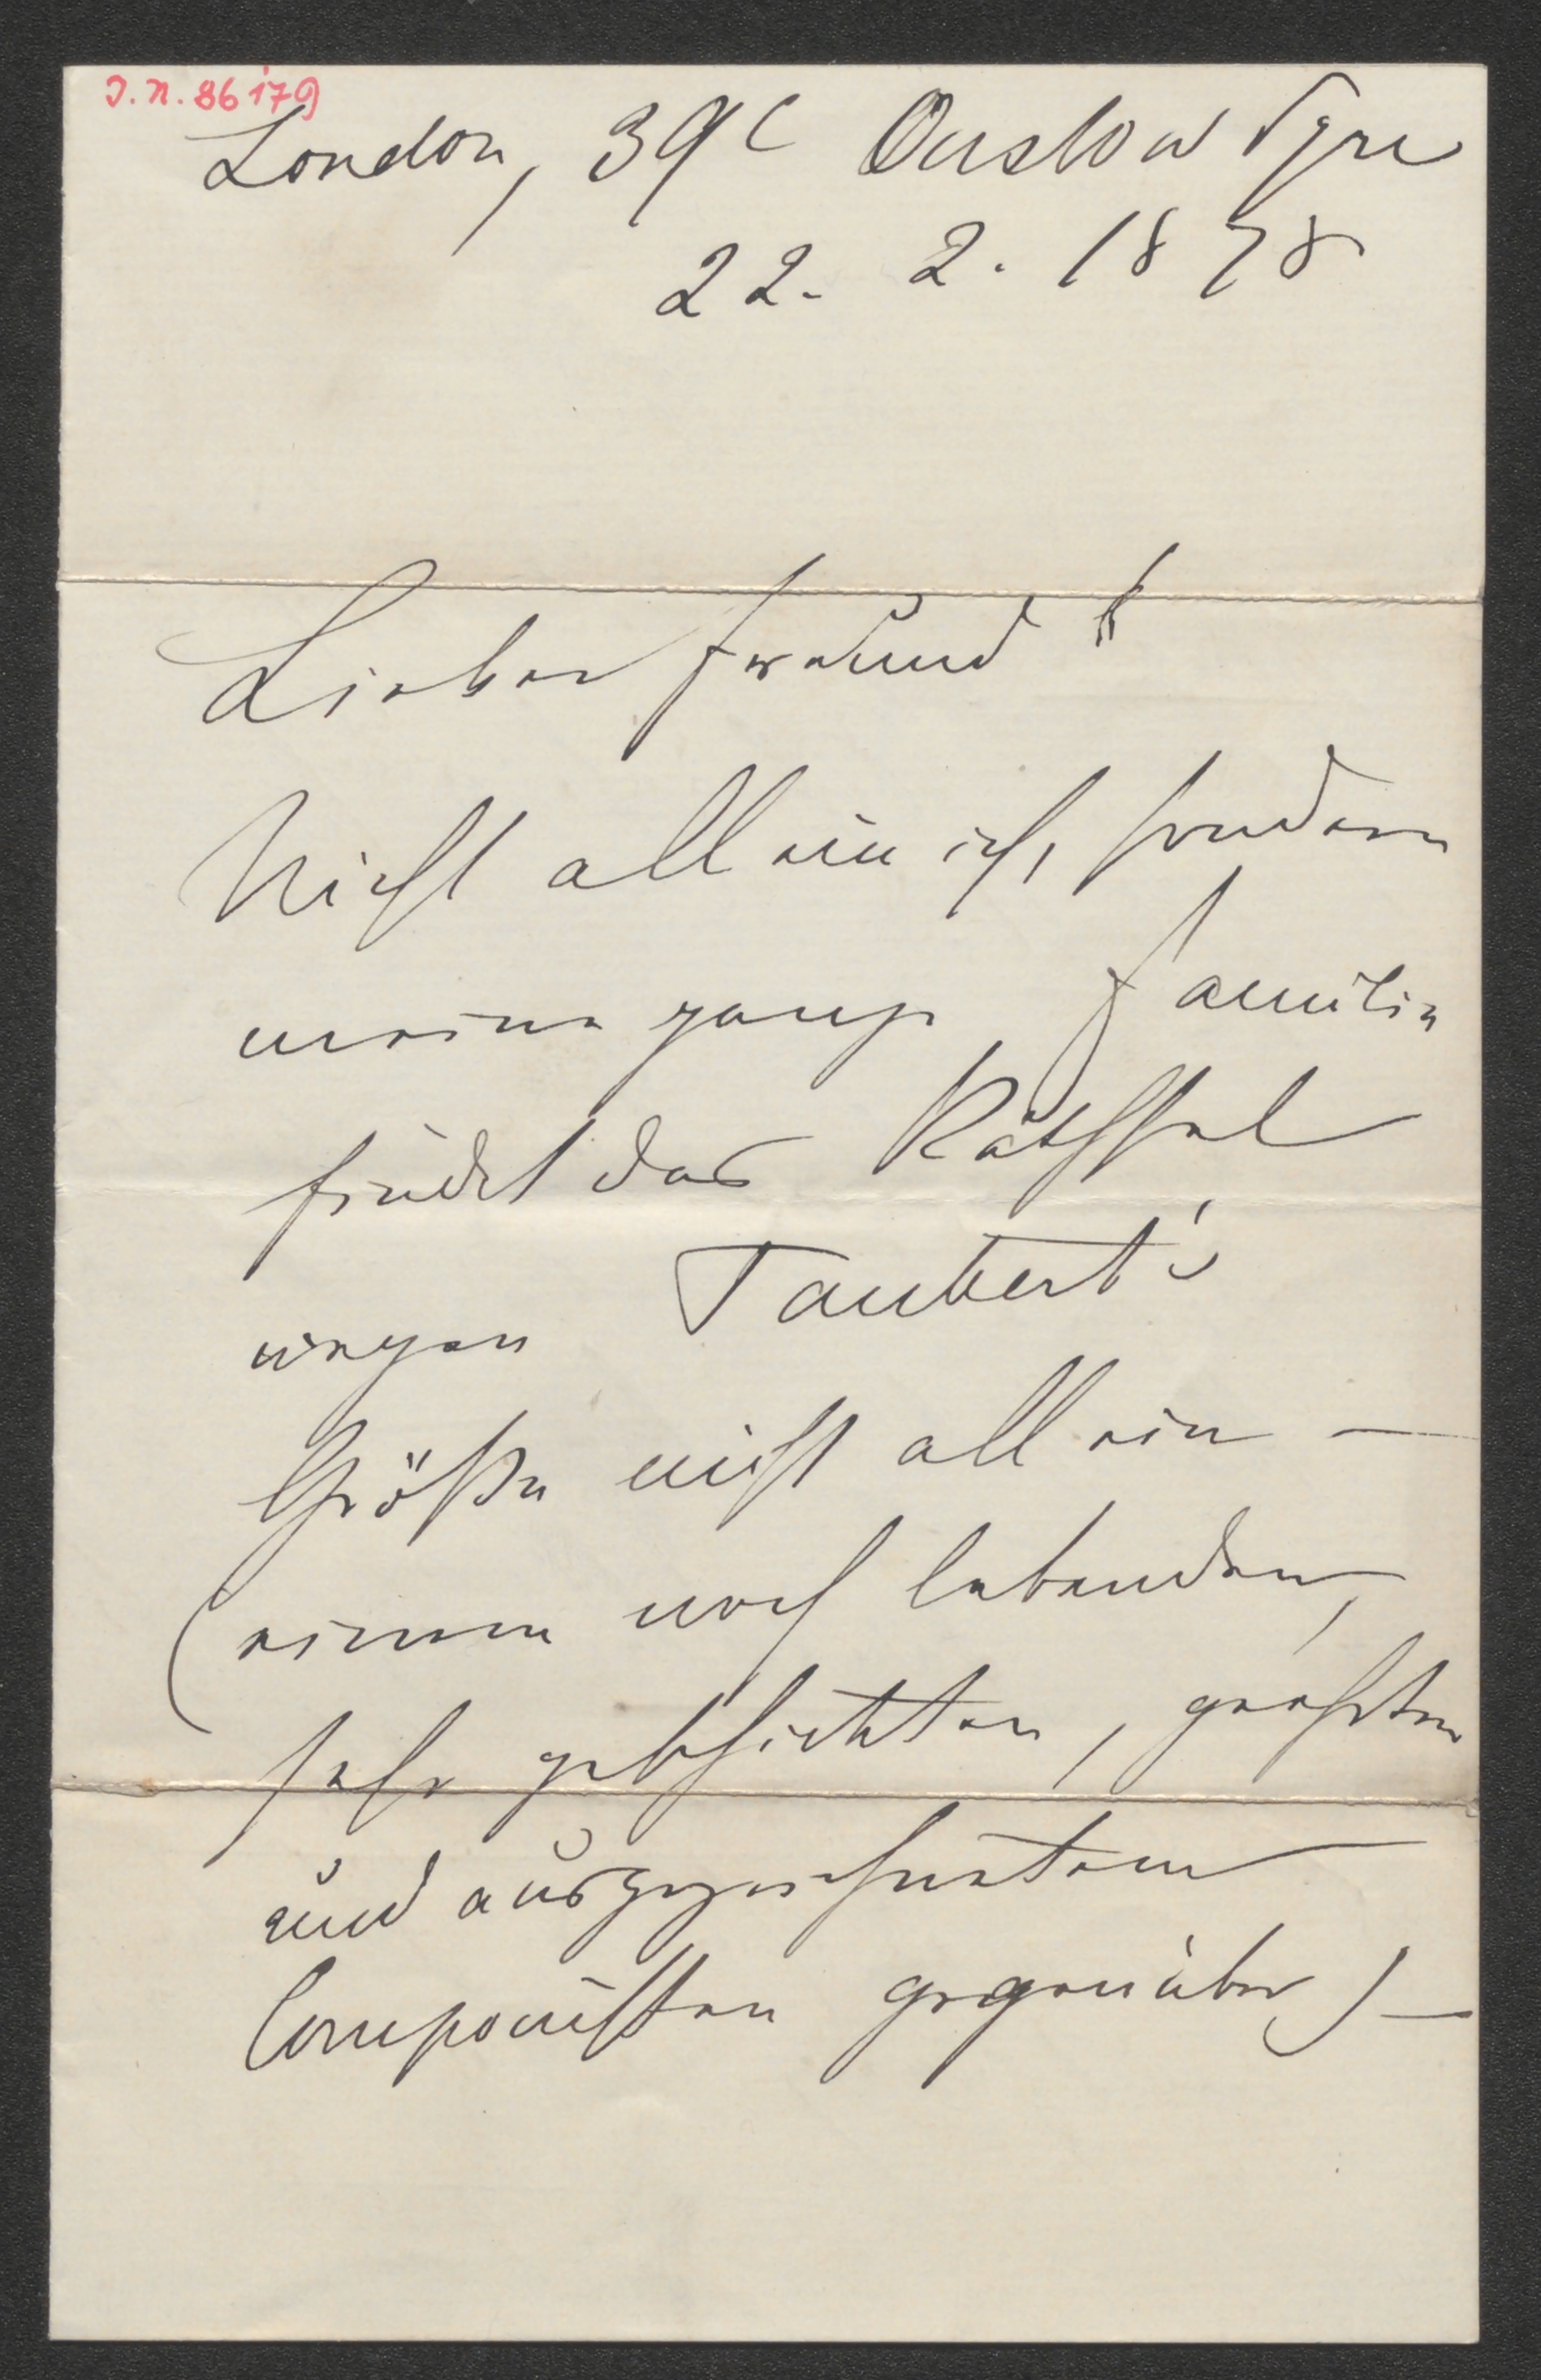 J.N. 86179
London, 39c Onslow Sqre
22. 2. 1878
Lieber Freund!
Nicht allein ich, sondern
meine ganze Familie
findet das Räthsel
wegen Taubert's
Größe nicht allein —
(einem noch lebenden,
sehr geschickten, geehrten
und ausgezeichneten
Componisten gegenüber) —